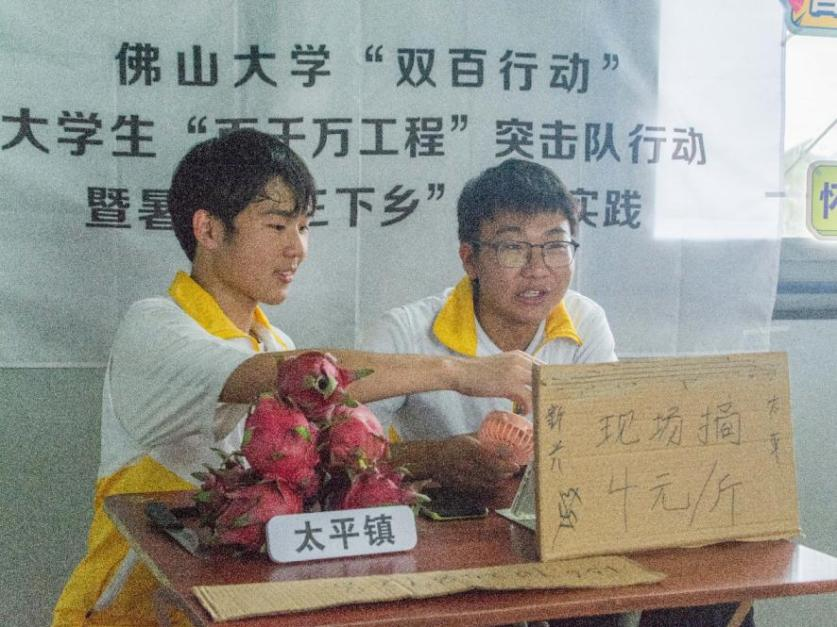 佛山大学“双百行动”
大学生“百千万工程”突击队行动
暨暑 三下乡” 实践
现场摘
4元/斤
新兴
太平
太平镇